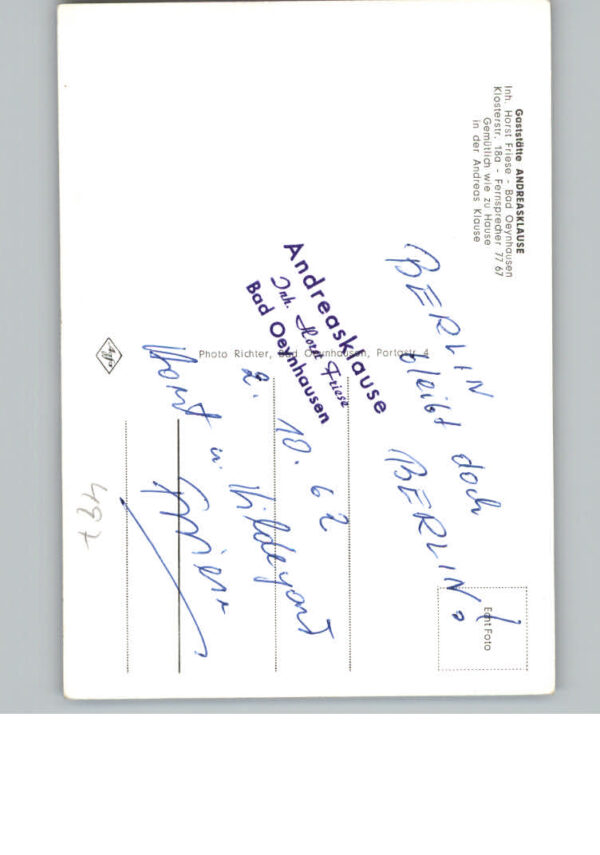 Gaststätte ANDREASKLAUSE
Inh. Horst Friese - Bad Oeynhausen
Klosterstr. 18a - Fernsprecher 77 67
Gemütlich wie zu Hause
in der Andreas Klause
BERLIN
bleibt doch
BERLIN!
Echt Foto
Andreasklause
Inh. Horst Friese
Bad Oeynhausen
Photo Richter, Bad Oeynhausen, Portastr. 4
2. 10. 62
Horst u. Hildegard
Friese
Agfa